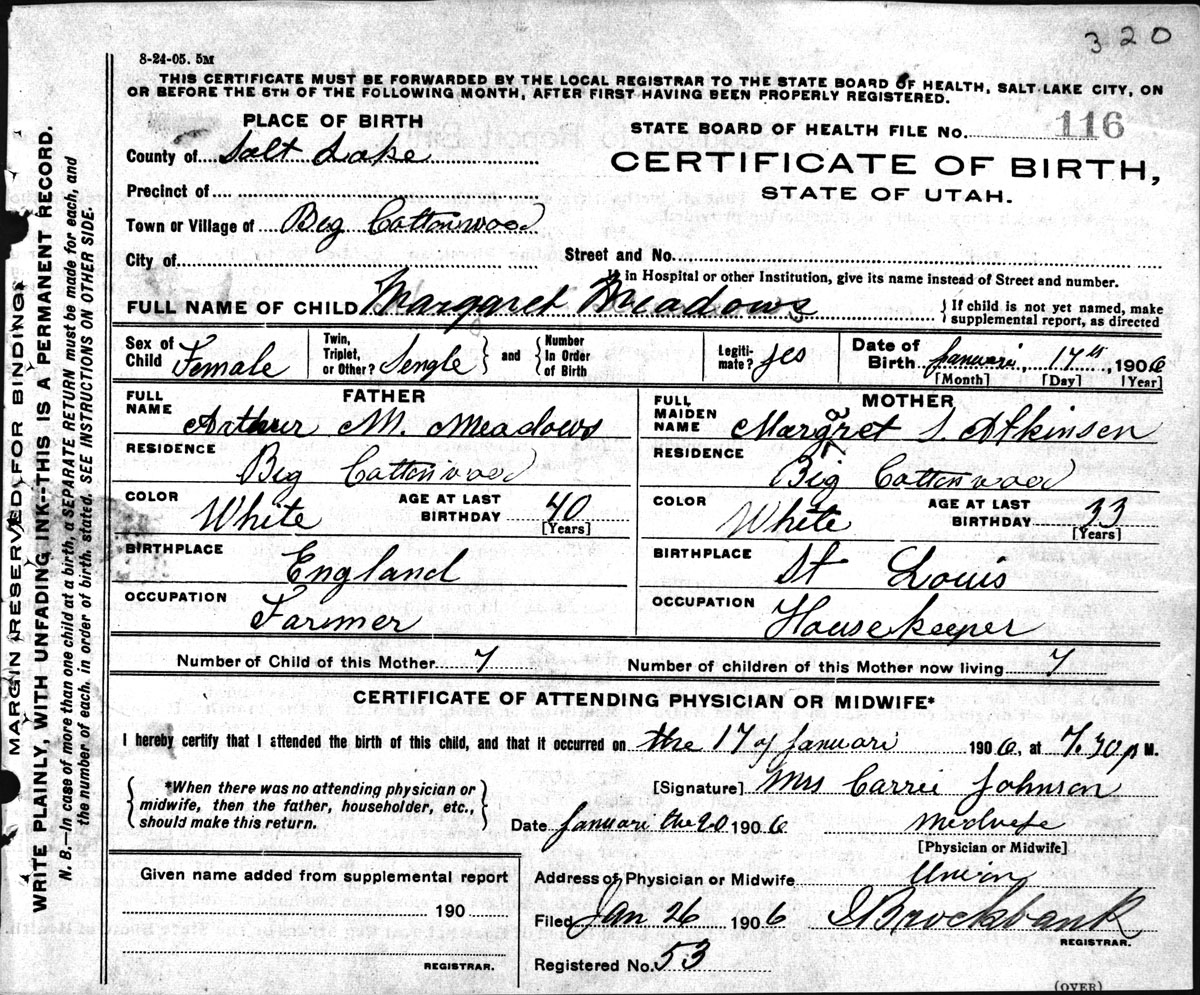 320
8-24-05. 5M
THIS CERTIFICATE MUST BE FORWARDED BY THE LOCAL REGISTRAR TO THE STATE BOARD OF HEALTH, SALT LAKE CITY, ON
OR BEFORE THE 5TH OF THE FOLLOWING MONTH, AFTER FIRST HAVING BEEN PROPERLY REGISTERED.
PLACE OF BIRTH
STATE BOARD OF HEALTH FILE No. 116
County of Salt Lake
CERTIFICATE OF BIRTH,
STATE OF UTAH.
Precinct of
Town or Village of Big Cottonwood
City of
Street and No.
If in Hospital or other Institution, give its name instead of Street and number.
FULL NAME OF CHILD Margaret Meadows { If child is not yet named, make
supplemental report, as directed
Sex of Child Female
Twin, Triplet, or Other? Sengle } and { Number In Order of Birth
Legiti-mate? yes
Date of Birth Januari, 17th, 1906
[Month] [Day] [Year]
FATHER
FULL NAME Arthur M. Meadows
RESIDENCE Big Cottonwood
COLOR White
AGE AT LAST BIRTHDAY 40
[Years]
BIRTHPLACE England
OCCUPATION Farmer
MOTHER
FULL MAIDEN NAME Margaret S. Atkinsen
RESIDENCE Big Cottonwood
COLOR White
AGE AT LAST BIRTHDAY 33
[Years]
BIRTHPLACE St Louis
OCCUPATION Housekeeper
Number of Child of this Mother 7
Number of children of this Mother now living 7
CERTIFICATE OF ATTENDING PHYSICIAN OR MIDWIFE*
I hereby certify that I attended the birth of this child, and that it occurred on the 17 of Januari 1906, at 7.30 P M.
{ *When there was no attending physician or
midwife, then the father, householder, etc.,
should make this return. }
[Signature] Mrs Carrie Johnson
Date Januari the 20 1906
Medwife
[Physician or Midwife]
Given name added from supplemental report
190
REGISTRAR.
Address of Physician or Midwife Union
Filed Jan 26 1906
Brockbank
REGISTRAR.
Registered No. 53
(OVER)
MARGIN RESERVED FOR BINDING
WRITE PLAINLY, WITH UNFADING INK--THIS IS A PERMANENT RECORD.
N. B.—In case of more than one child at a birth, a SEPARATE RETURN must be made for each, and
the number of each, in order of birth, stated. SEE INSTRUCTIONS ON OTHER SIDE.